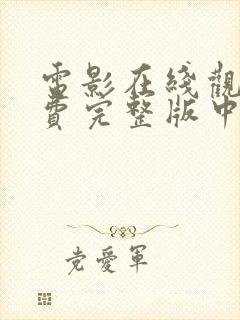 電影在綫觀
費完整版中
党愛軍